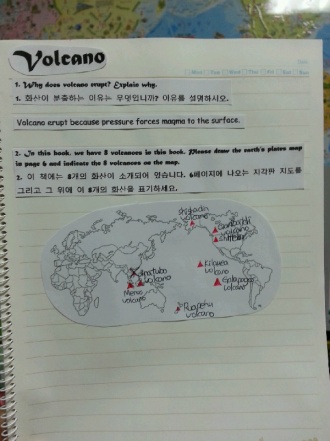 Volcano
1. Why does volcano erupt? Explain why.
1. 화산이 분출하는 이유는 무엇인니까? 이유를 설명하시오.
Volcano erupt because pressure forces magma to the surface.
2. In this book, we have 8 volcanoes in this book. Please draw the earth's plates map
in page 6 and indicate the 8 volcanoes on the map.
2. 이 책에는 8개의 화산이 소개되어 있습니다. 6페이지에 나오는 지각판 지도를
그리고 그 위에 이 8개의 화산을 표기하세요.
volcano
volcano
Kilauea
volcano
volcano
Merapi
volcano
Galapagos
volcano
Ruapehu
volcano